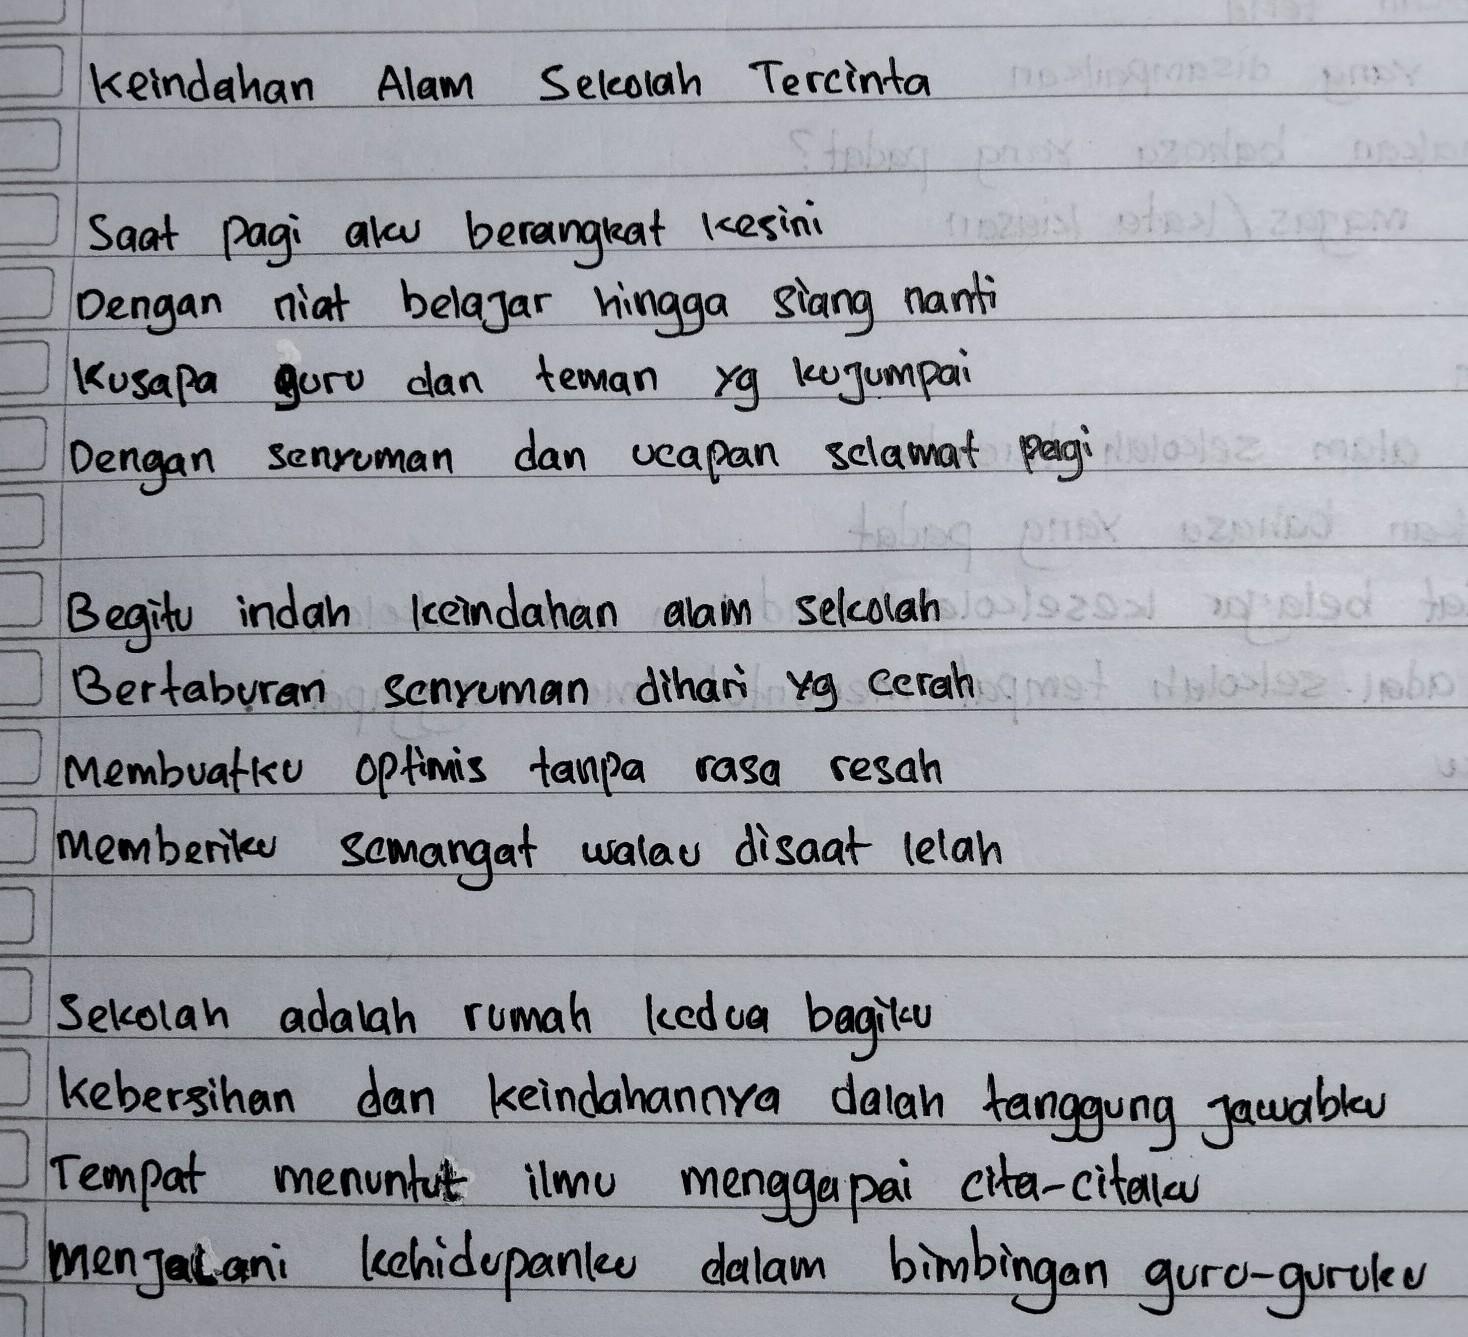 Keindahan Alam Sekolah Tercinta
Saat pagi aku berangkat kesini
Dengan niat belajar hingga siang nanti
Kusapa guru dan teman yg kujumpai
Dengan senyuman dan ucapan selamat pagi
Begitu indah keindahan alam sekolah
Bertaburan senyuman dihari yg cerah
Membuatku optimis tanpa rasa resah
Memberiku semangat walau disaat lelah
Sekolah adalah rumah kedua bagiku
Kebersihan dan keindahannya dalah tanggung jawabku
Tempat menuntut ilmu menggapai cita-citaku
Menjalani kehidupanku dalam bimbingan guru-guruku